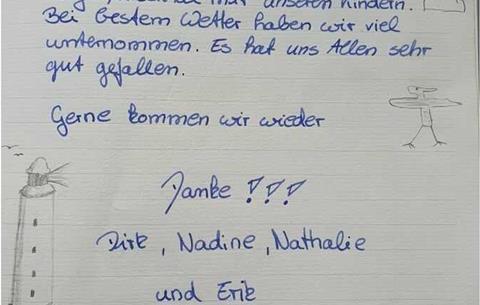 unseren Kindern.
Bei bestem Wetter haben wir viel
unternommen. Es hat uns Allen sehr
gut gefallen.
Gerne kommen wir wieder
Danke !!!
Dirk, Nadine, Nathalie
und Erik